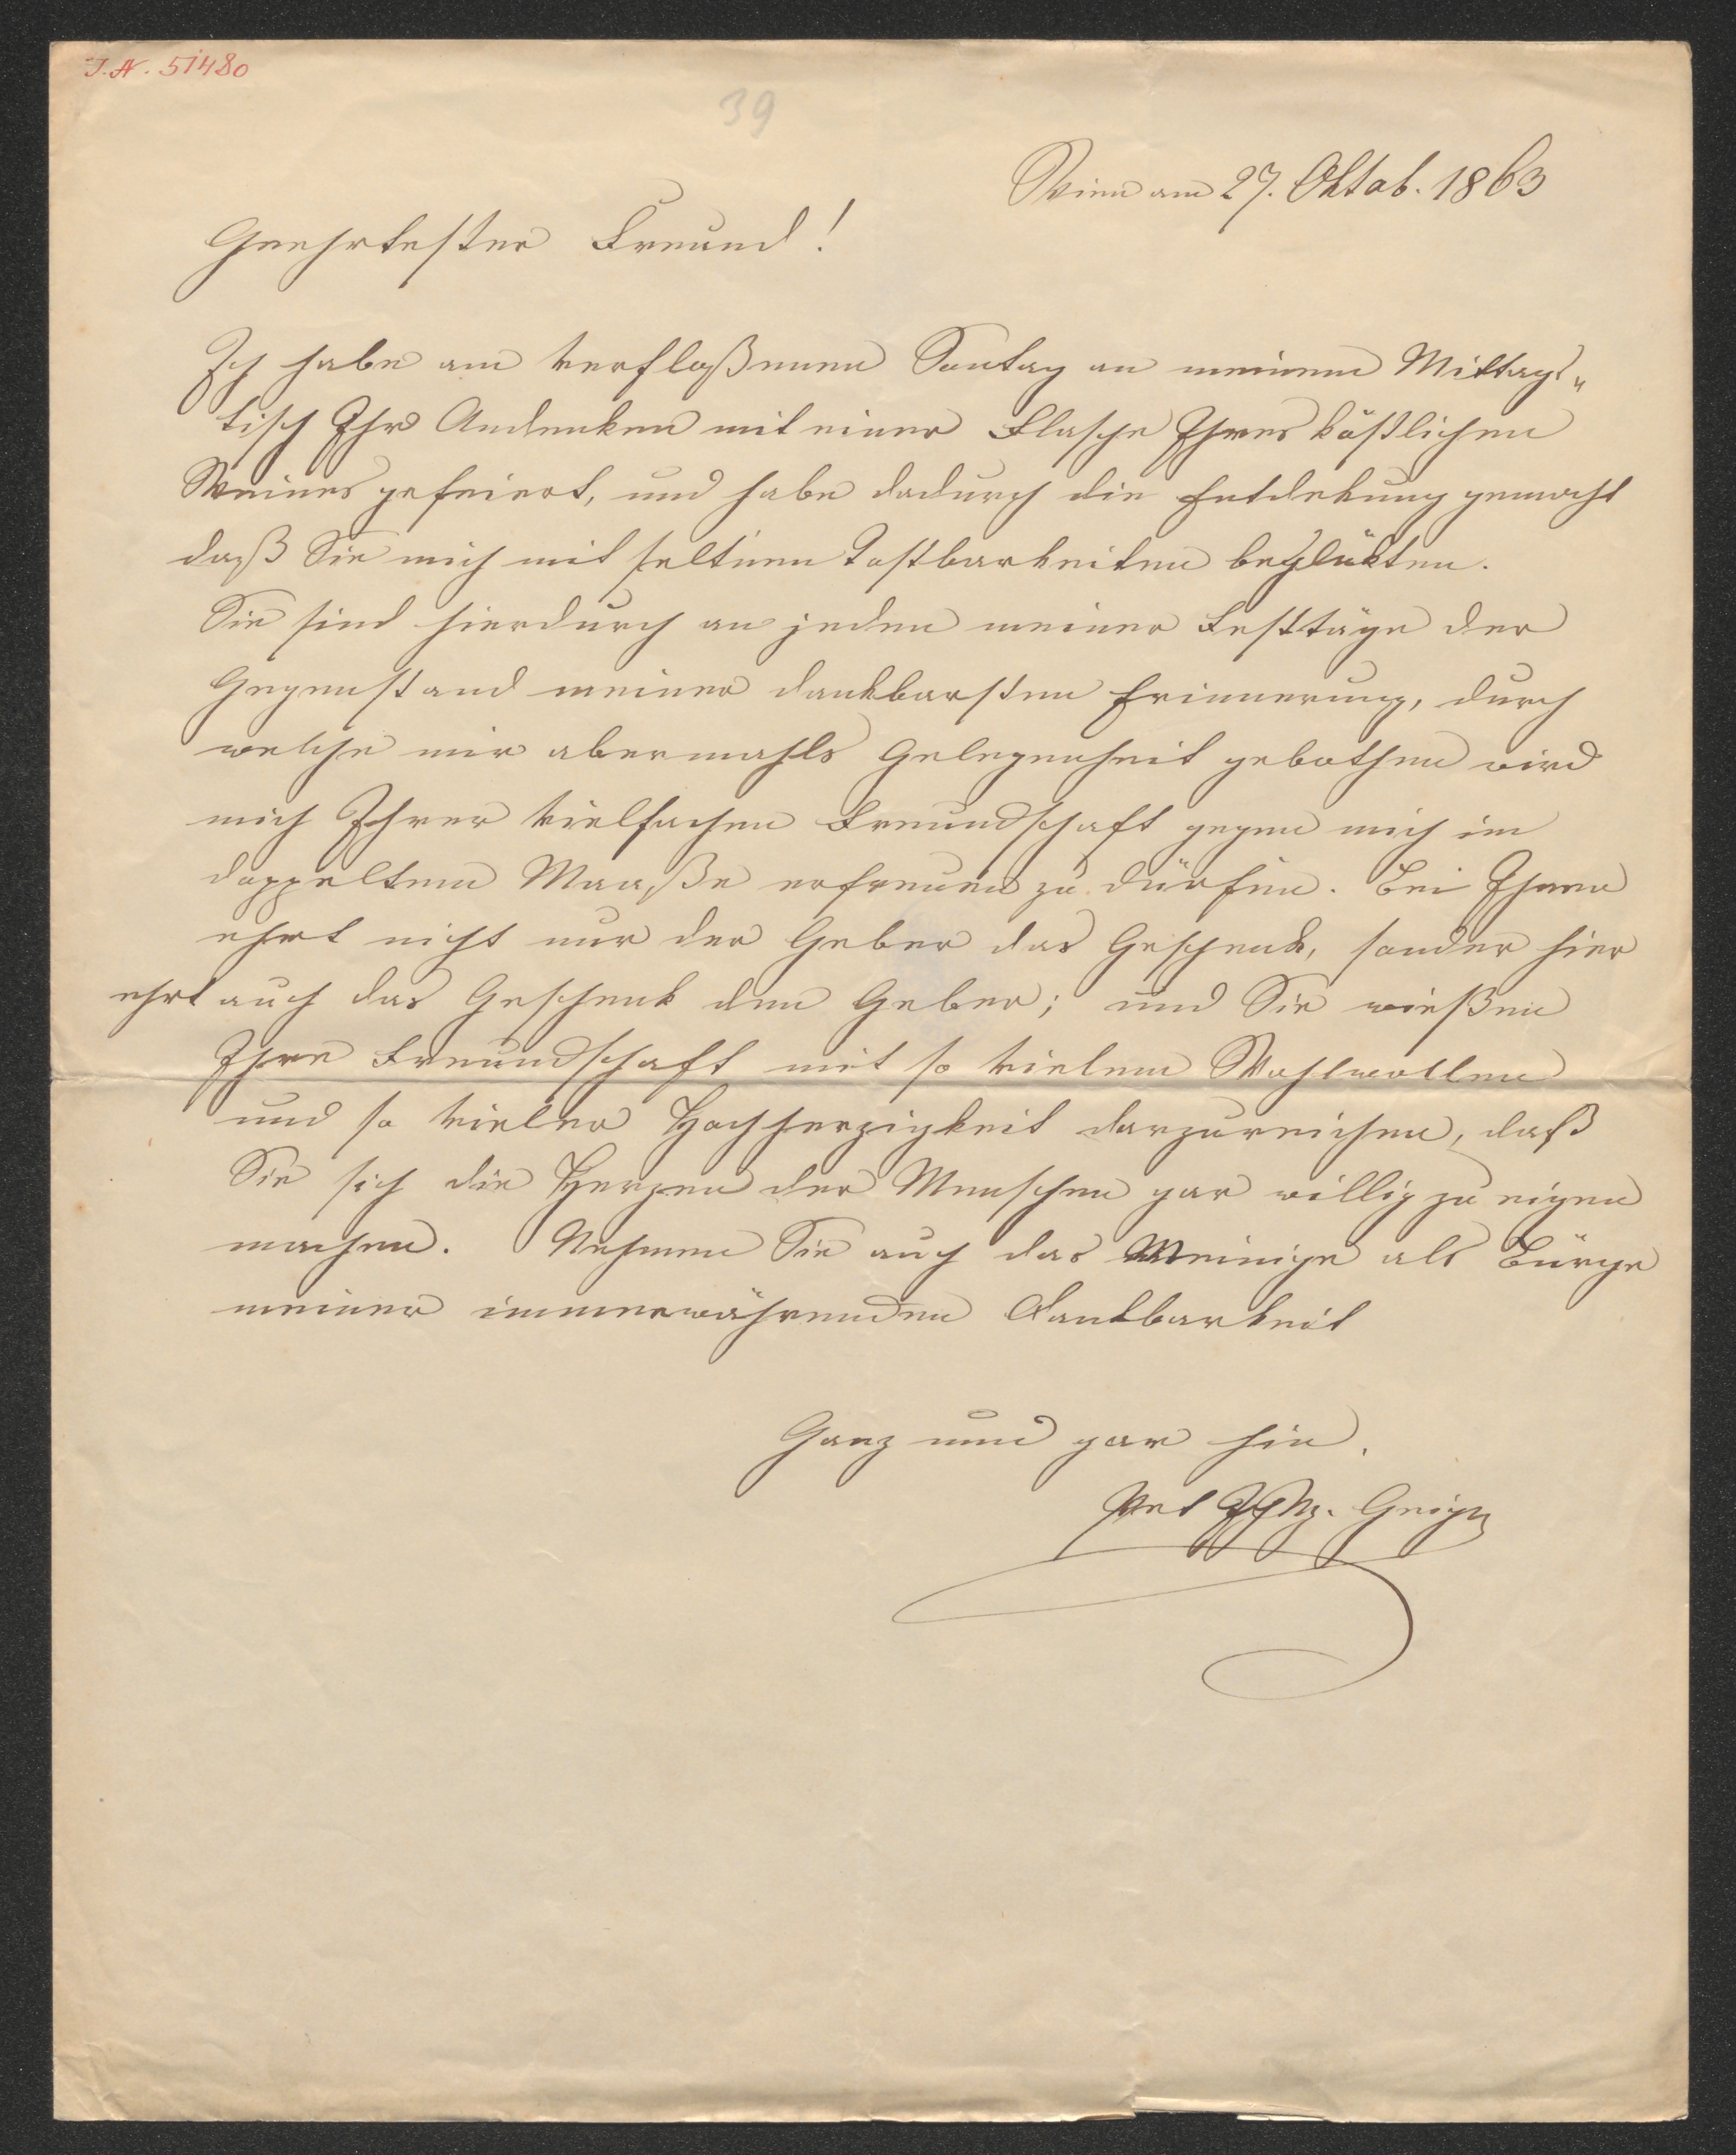 J. N. 51480
39
Wien am 27. Oktob. 1863
Geehrtester Freund!
Ich habe am verfloßenen Sontag an meinem Mittags„
tisch Ihr Andenken mit einer Flasche Ihres köstlichen
Weines gefeiert, und habe dadurch die Entdekung gemacht
daß Sie mich mit seltenen Kostbarkeiten beglükten.
Sie sind hierdurch an jeden meiner Festtäge der
Gegenstand meiner dankbarsten Erinnerung, durch
welche mir abermahls Gelegenheit gebothen wird
mich Ihrer vielfachen Freundschaft gegen mich im
doppeltem Maaße erfreuen zu dürfen. Bei Ihnen
ehrt nicht nur der Geber das Geschenk, sonder hier
ehrt auch das Geschenk den Geber; und Sie wießen
Ihre Freundschaft mit so vielem Wohlwollen
und so vieler Hochherzigkeit darzureichen, daß
Sie sich die Herzen der Menschen gar willig zu eigen
machen. Nehmen Sie auch das Meinige als Bürge
meiner immerwährenden Dankbarkeit
Ganz und gar hin.
Pet Joh. N. Geiger